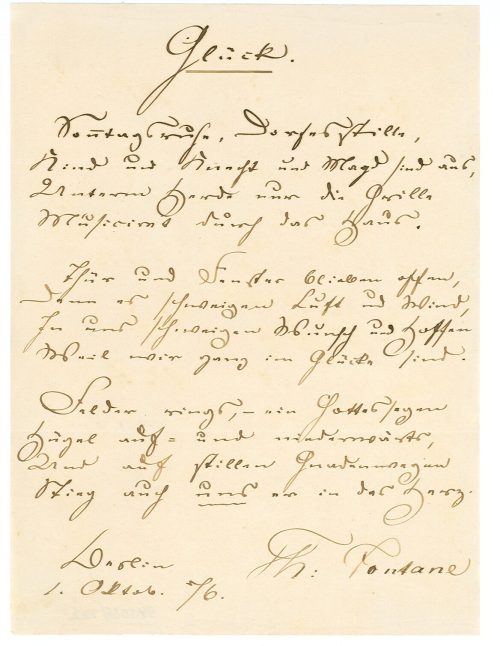 Glück.
Sonntagsruhe, Dorfesstille,
Kind und Knecht und Magd sind aus,
Unterm Herde nur die Grille
Musiciret durch das Haus.
Thür und Fenster blieben offen,
Denn es schweigen Luft und Wind,
In uns schweigen Wunsch und Hoffen
Weil wir ganz im Glücke sind.
Felder rings, – ein Gottessegen
Hügel auf- und niederwärts,
Und auf stillen Gnadenwegen
Stieg auch uns er in das Herz.
Berlin
1. Oktob. 76.
Th: Fontane